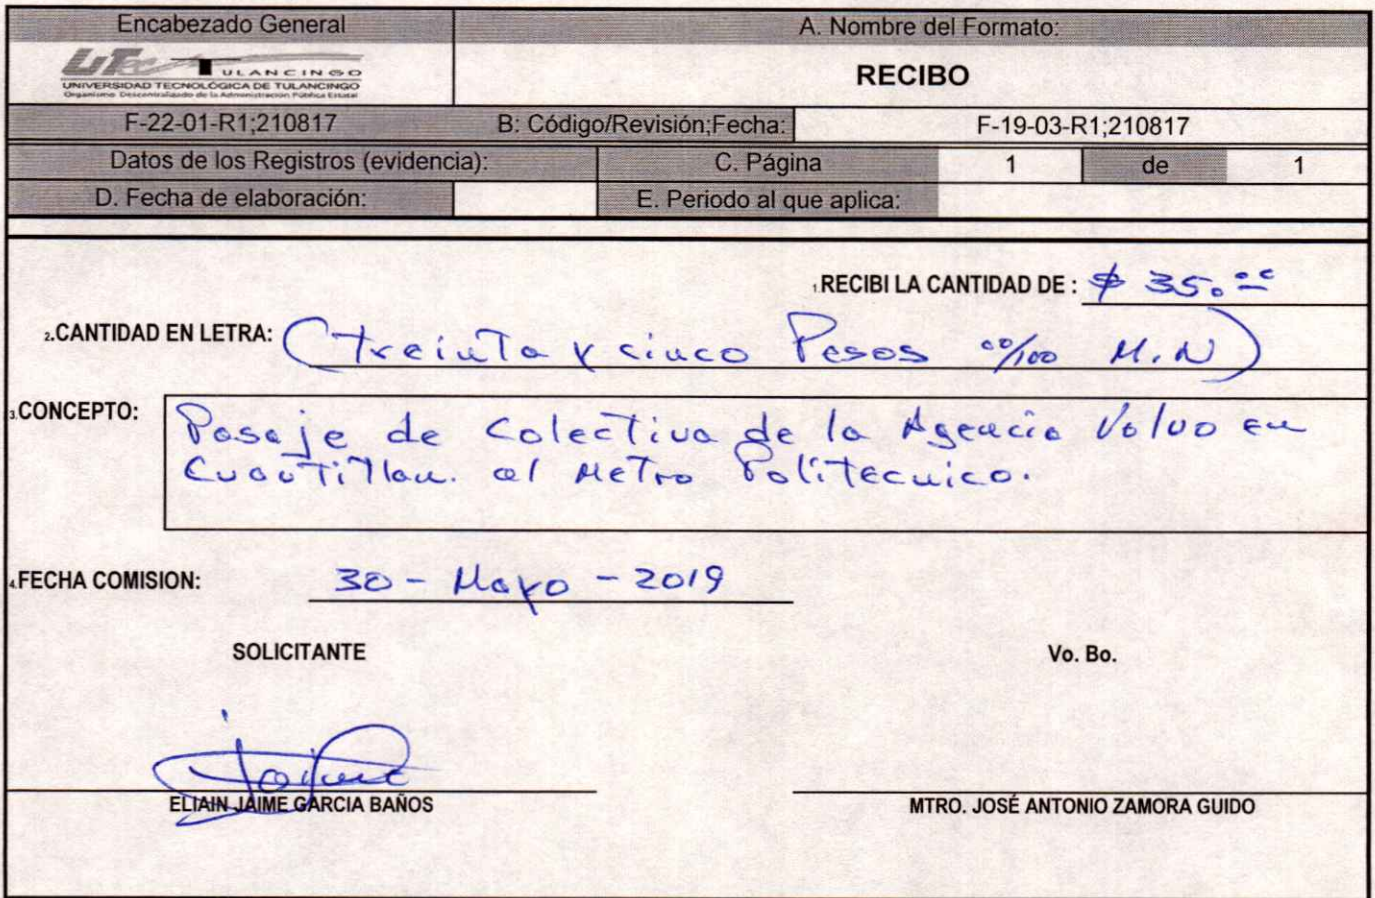 Encabezado General
A. Nombre del Formato:
UTec TULANCINGO
UNIVERSIDAD TECNOLÓGICA DE TULANCINGO
Organismo Descentralizado de la Administración Pública Estatal
RECIBO
F-22-01-R1;210817 B: Código/Revisión;Fecha: F-19-03-R1;210817
Datos de los Registros (evidencia): C. Página 1 de 1
D. Fecha de elaboración: E. Periodo al que aplica:
1.RECIBI LA CANTIDAD DE : $ 35.00
2.CANTIDAD EN LETRA: (treinta y cinco Pesos 00/100 M.N)
3.CONCEPTO: Pasaje de Colectiva de la Agencia Volvo en
Cuautitlan. al Metro Politecnico.
4.FECHA COMISION: 30 - Mayo - 2019
SOLICITANTE Vo. Bo.
Jaime
ELIAIN JAIME GARCIA BAÑOS MTRO. JOSÉ ANTONIO ZAMORA GUIDO